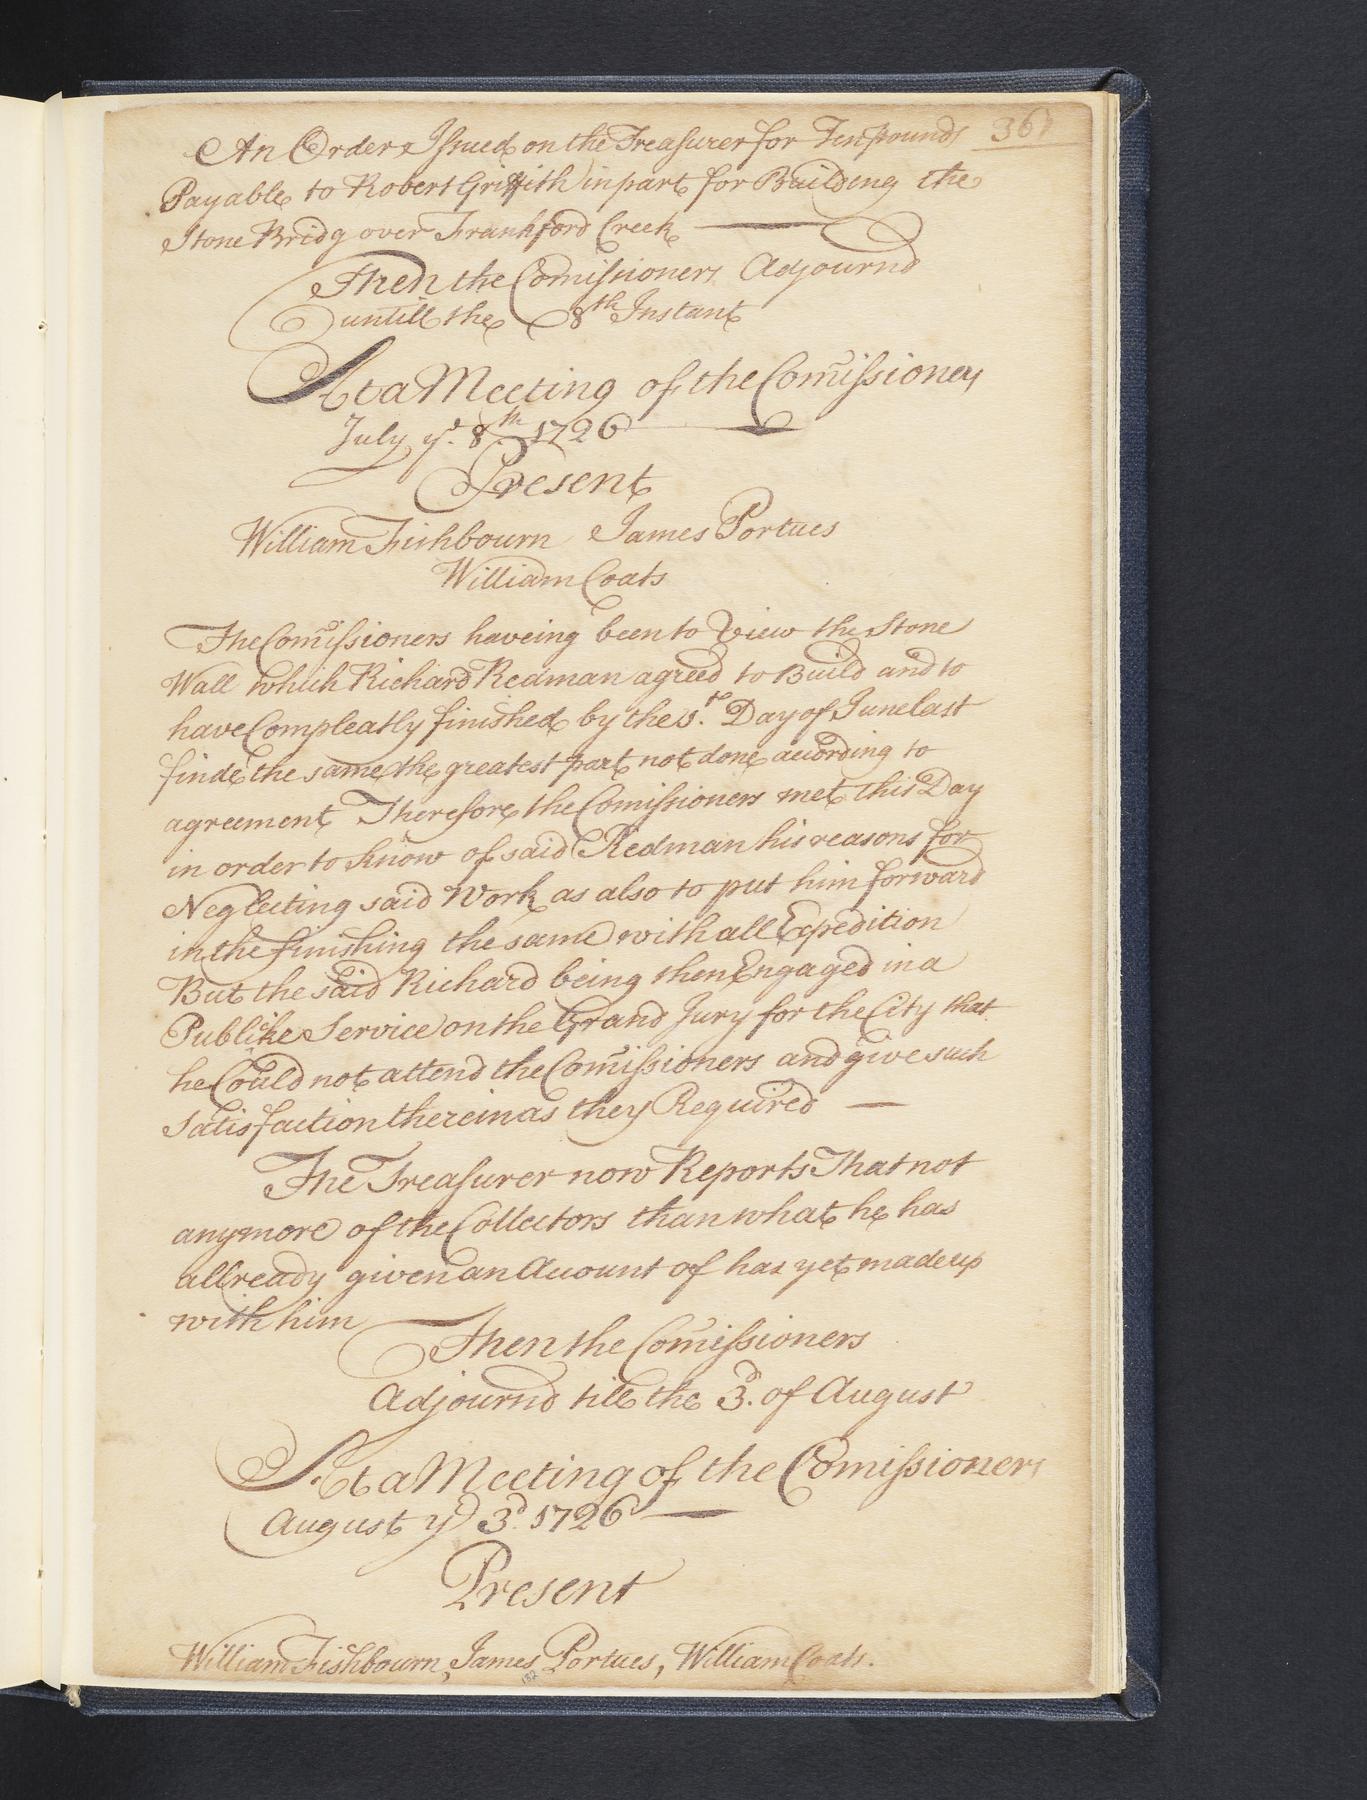 36
An Order Issued on the Treasurer for Ten pounds
Payable to Robert Griffith in part for Building the
Stone Bridg over Frankford Creek
Then the Comissioners Adjournd
untill the 8th Instant
At a Meeting of the Comissioners
July ye. 8th 1726
Present
William Fishbourn James Portues
William Coats
The Comissioners haveing been to View the Stone
Wall which Richard Redman agreed to Build and to
have Compleatly finished by the Day of June last
finde the same the greatest part not done according to
agreement Therefore the Comissioners met this Day
in order to know of said Redman his reasons for
Neglecting said Work as also to put him forward
in the finishing the same with all Expedition
But the said Richard being then Engaged in a
Publike Service on the Grand Jury for the City that
he Could not attend the Comissioners and give such
Satisfaction therein as they Required
The Treasurer now Reports That not
any more of the Collectors than what he has
allready given an Account of has yet made up
with him
Then the Comissioners
Adjournd till the 3d. of August
At a Meeting of the Comissioners
August ye 3d. 1726
Present
William Fishbourn, James Portues, William Coats.